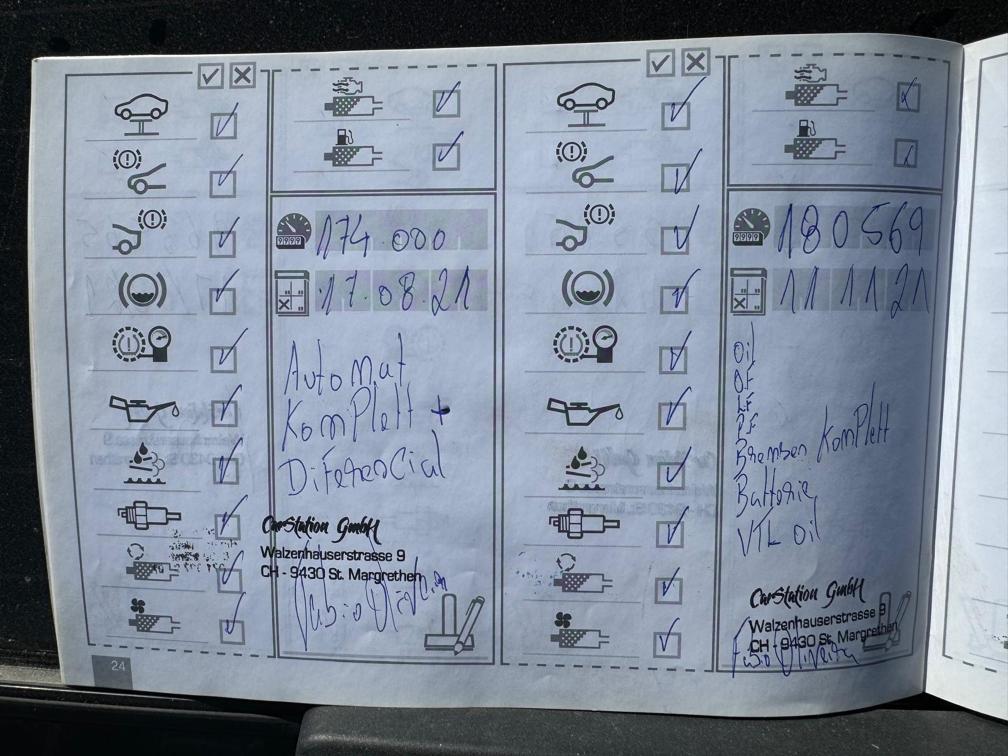 174.000
17.08.21
Automat
Komplett +
Diferencial
CarStation GmbH
Walzenhauserstrasse 9
CH - 9430 St. Margrethen
24
180569
11 11 21
Oil
ÖF
LF
PF
Bremsen Komplett
Batterie
VTL Oil
CarStation GmbH
Walzenhauserstrasse 9
CH - 9430 St. Margrethen